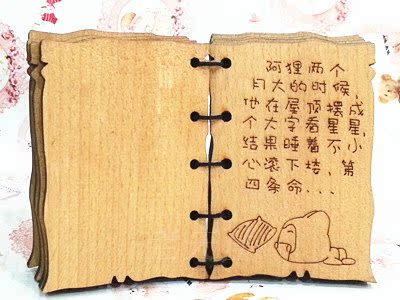 阿狸两个
月大的时候,
他在屋顶摆成
个大字看星星,
结果睡着不小
心滚下楼,第
四条命...